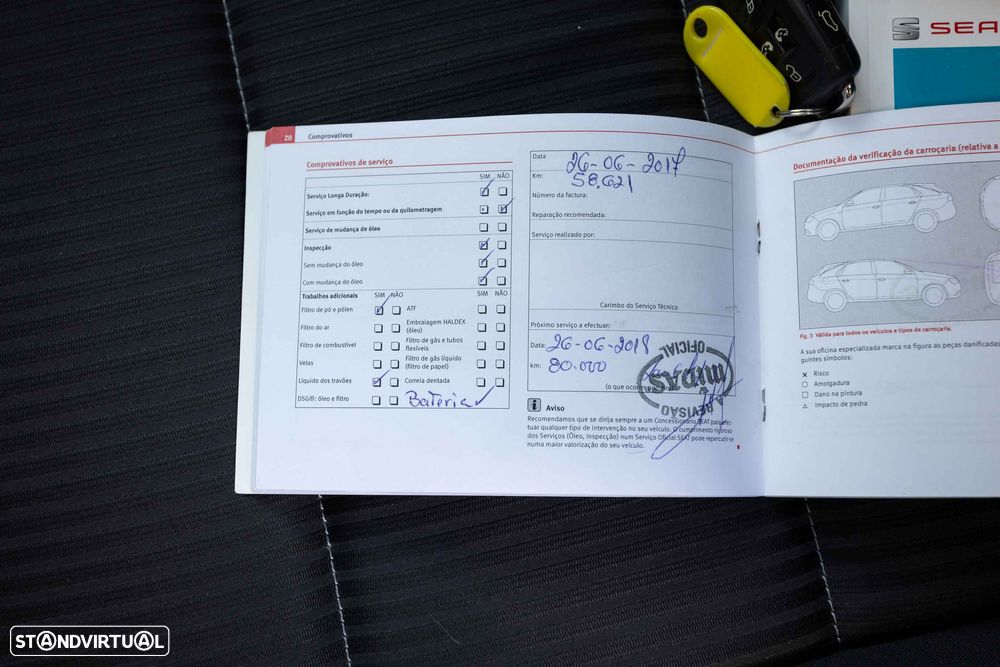 SEA
20 Comprovativos
Comprovativos de serviço
SIM NÃO
Serviço Longa Duração:
Serviço em função do tempo ou da quilometragem
Serviço de mudança de óleo
Inspecção
Sem mudança do óleo
Com mudança do óleo
Trabalhos adicionais SIM NÃO SIM NÃO
Filtro de pó e pólen ATF
Filtro do ar Embraiagem HALDEX (óleo)
Filtro de combustível Filtro de gás e tubos flexíveis
Velas Filtro de gás líquido (filtro de papel)
Líquido dos travões Correia dentada
DSG®: óleo e filtro Bateria
Data 26-06-2017
Km: 58.621
Número da factura:
Reparação recomendada:
Serviço realizado por:
Carimbo do Serviço Técnico
Próximo serviço a efectuar:
Data: 26-06-2018
km: 80.000
(o que ocorrer
OFICIAL
MIDAS
REVISÃO
i Aviso
Recomendamos que se dirija sempre a um Concessionário SEAT para efec-
tuar qualquer tipo de intervenção no seu veículo. O cumprimento rigoroso
dos Serviços (Óleo, Inspecção) num Serviço Oficial SEAT pode repercutir-se
numa maior valorização do seu veículo.
Documentação da verificação da carroçaria (relativa a
Fig. 3 Válida para todos os veículos e tipos de carroçaria.
A sua oficina especializada marca na figura as peças danificadas
guintes símbolos:
× Risco
○ Amolgadura
□ Dano na pintura
△ Impacto de pedra
STANDVIRTUAL